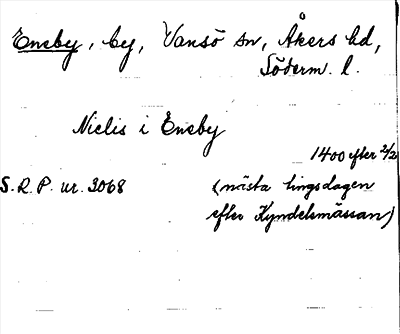 Eneby, by, Vansö sn, Åkers hd,
Söderm. l.
Nielis i Eneby
1400 efter 2/2
S.R.P. nr. 3068 (nästa tingsdagen
efter Kyndelsmässan)